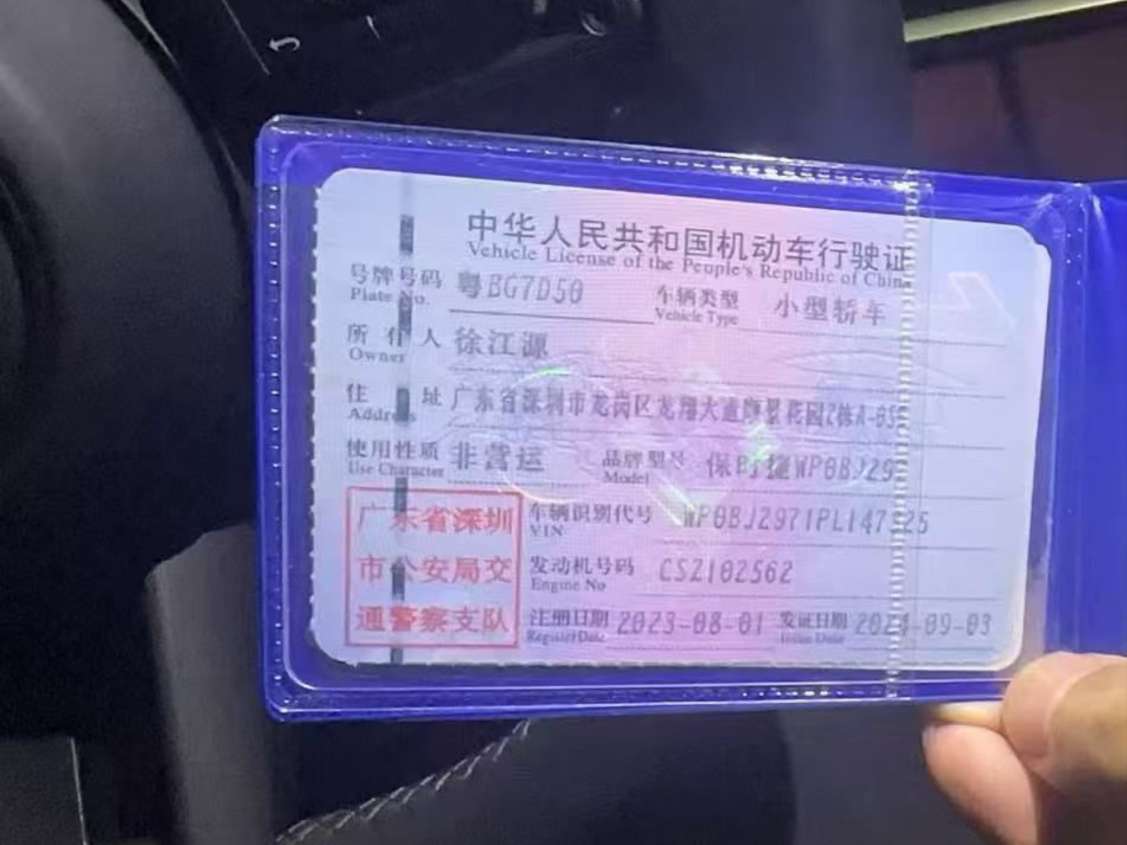 中华人民共和国机动车行驶证
Vehicle License of the People's Republic of China
号牌号码 粤BG7D50 车辆类型 小型轿车
Plate No. Vehicle Type
所有人 徐江源
Owner
住址 广东省深圳市龙岗区龙翔大道 花园2栋A-
Address
使用性质 非营运 品牌型号 保时捷WP0BJ29
Use Character Model
广东省深圳
市公安局交
通警察支队
车辆识别代号
VIN
发动机号码 CS2102562
Engine No
注册日期 2023-08-01 发证日期 2024-09-03
Register Date Issue Date